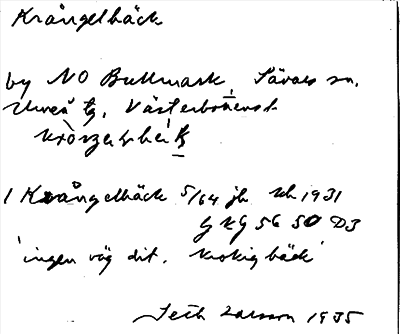 Krångelbäck
by NO Bullmark, Sävars sn.
Umeå tg, Västerbottens l.
1 Krångelbäck 5/64 jb 1931
GKG 56 50 D3
'ingen väg dit. krokig bäck'
Seth Larsson 1935